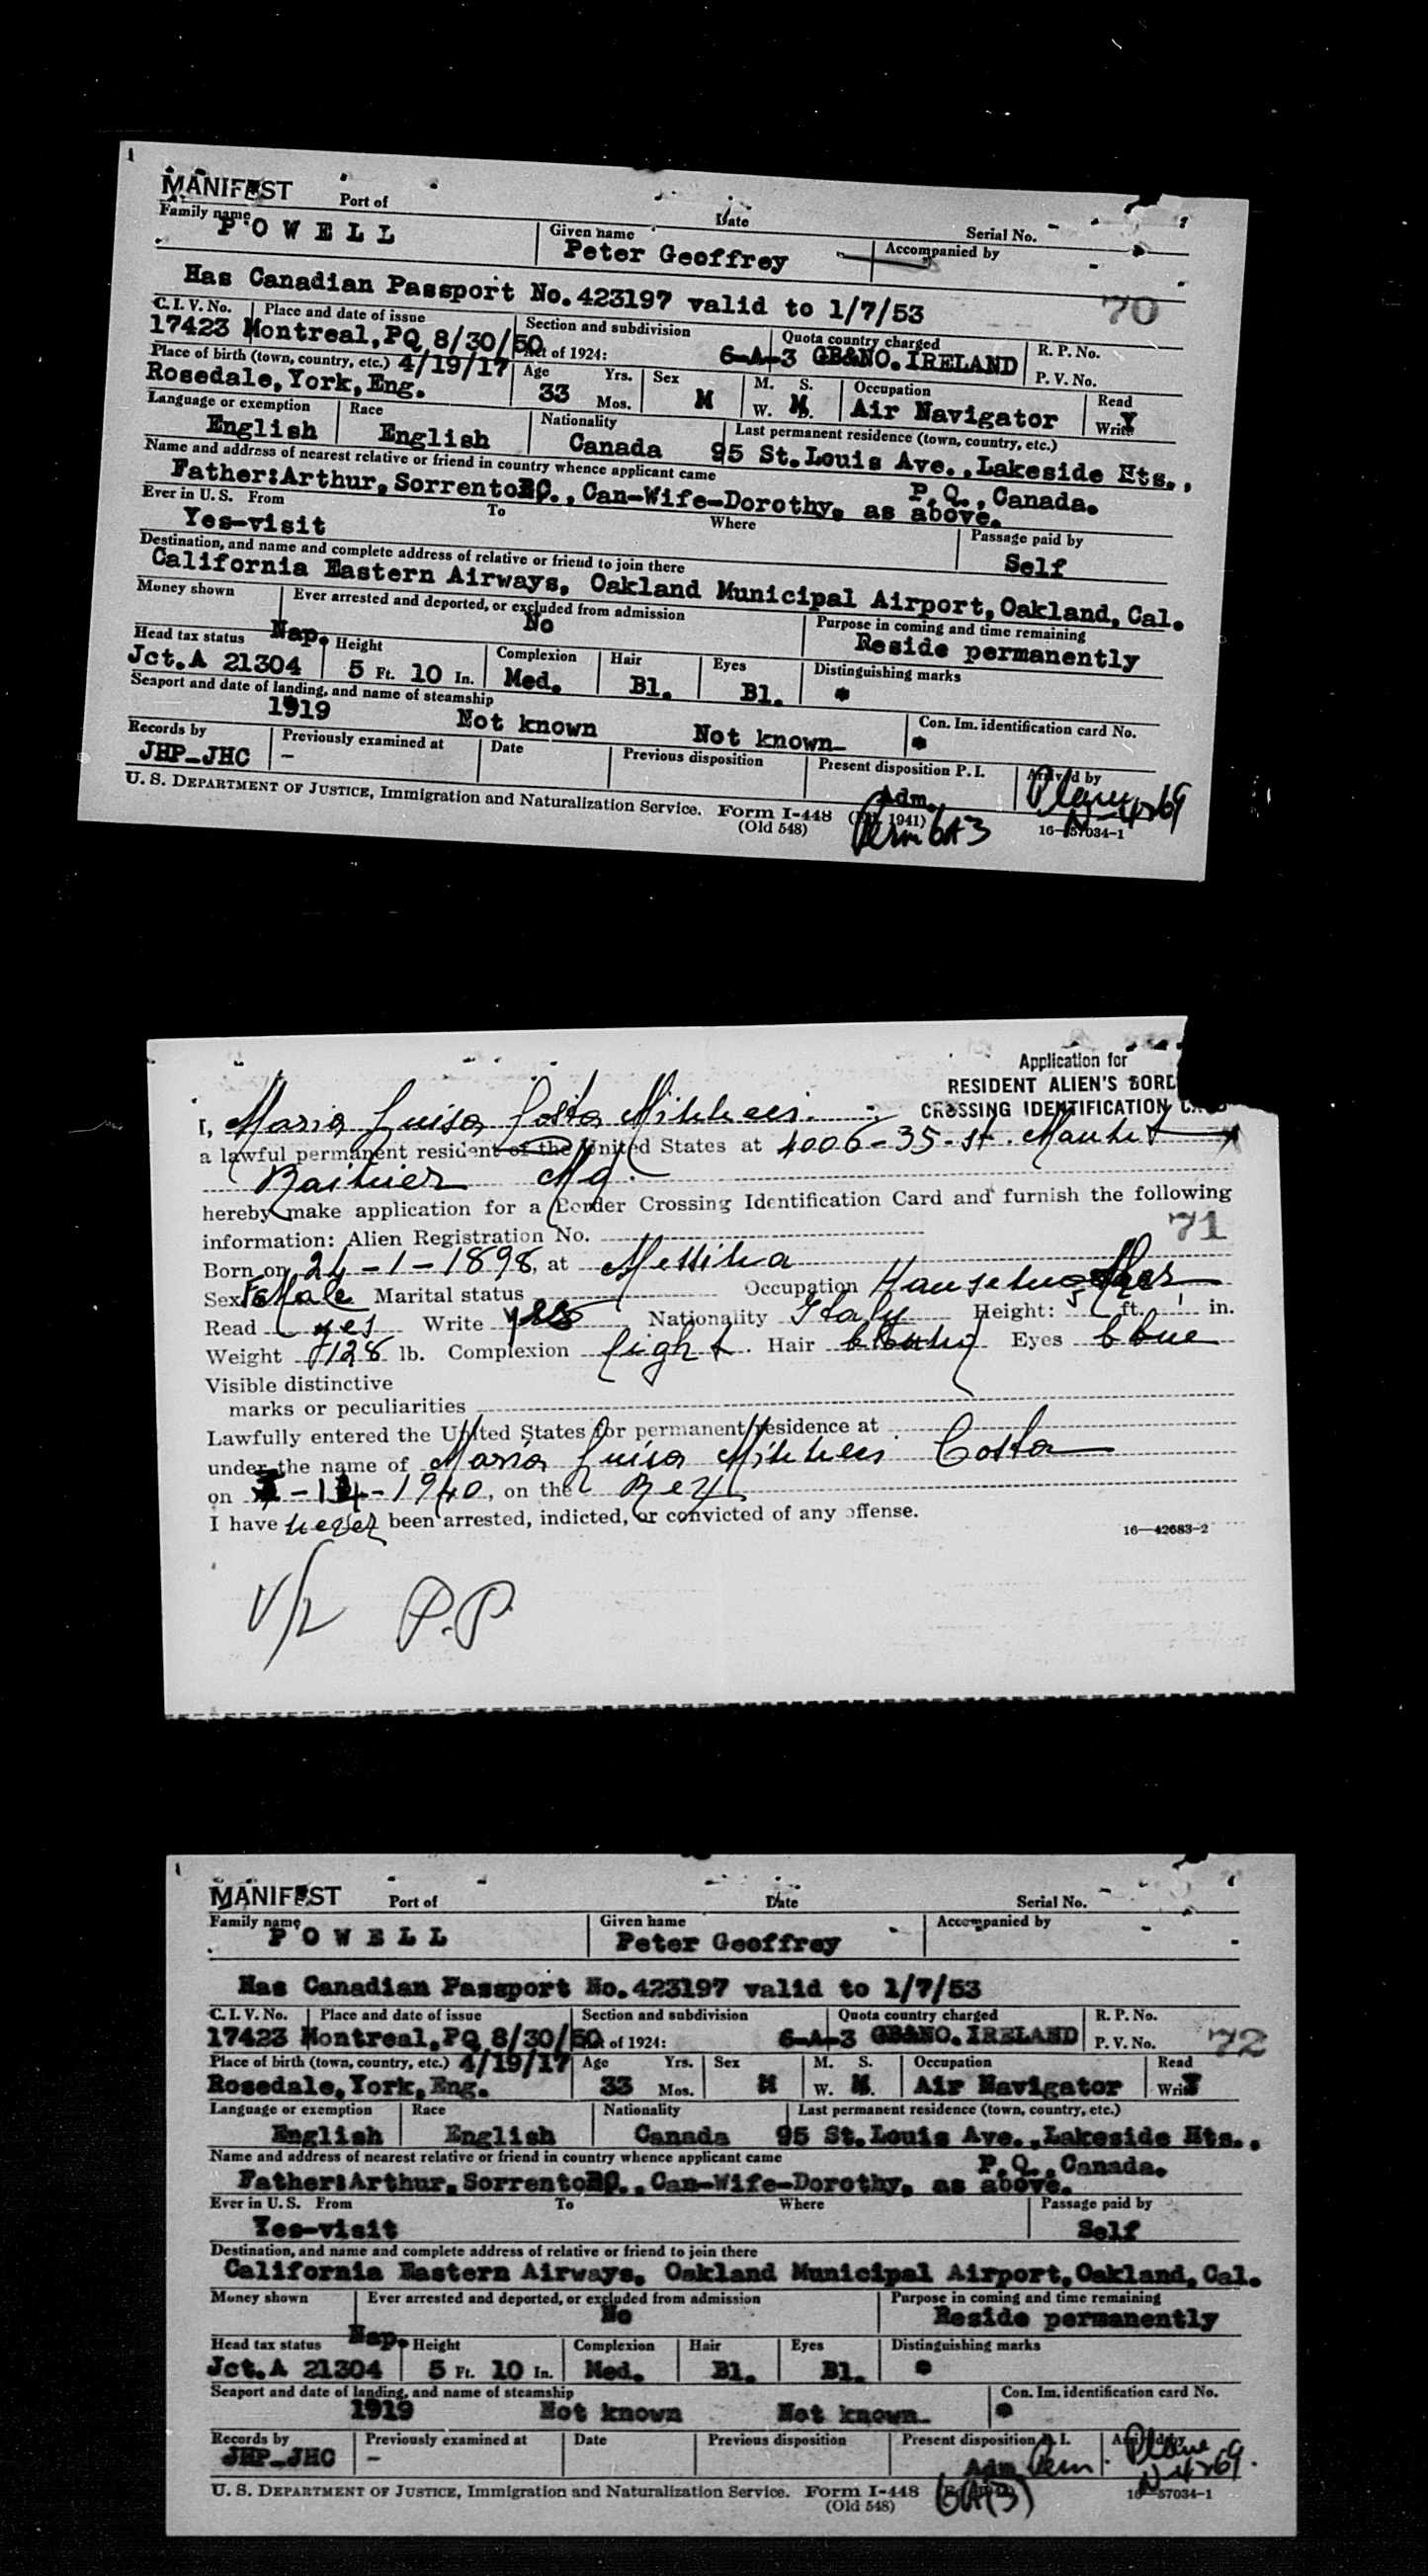 MANIFEST Port of Date Serial No.
Family name POWELL Given name Peter Geoffrey Accompanied by
Has Canadian Passport No.423197 valid to 1/7/53
70
C. I. V. No. Place and date of issue Section and subdivision Quota country charged R. P. No.
17423 Montreal,PQ 8/30/50 Act of 1924: 6-A-3 GB&NO.IRELAND P. V. No.
Place of birth (town, country, etc.) 4/19/17 Age Yrs. Sex M. S. Occupation Read
Rosedale,York,Eng. 33 Mos. M W. M. Air Navigator Write Y
Language or exemption Race Nationality Last permanent residence (town, country, etc.)
English English Canada 95 St.Louis Ave.,Lakeside Hts.,
Name and address of nearest relative or friend in country whence applicant came P.Q.,Canada.
Father:Arthur,Sorrento BC.,Can-Wife-Dorothy, as above.
Ever in U. S. From To Where Passage paid by
Yes-visit Self
Destination, and name and complete address of relative or friend to join there
California Eastern Airways, Oakland Municipal Airport,Oakland,Cal.
Money shown Ever arrested and deported, or excluded from admission Purpose in coming and time remaining
No Reside permanently
Head tax status Nap. Height Complexion Hair Eyes Distinguishing marks
Jct.A 21304 5 Ft. 10 In. Med. Bl. Bl. *
Seaport and date of landing, and name of steamship Con. Im. identification card No.
1919 Not known Not known- *
Records by Previously examined at Date Previous disposition Present disposition P. I. Arrived by
JHP-JHC - Adm. Plane
N-4269
U. S. DEPARTMENT OF JUSTICE, Immigration and Naturalization Service. Form I-448 1941) 16-57034-1
(Old 548) Perm 6A3
Application for
RESIDENT ALIEN'S BORD
CROSSING IDENTIFICATION CARD
I, Maria Luisa Costa
a lawful permanent resident of the United States at 4006-35-st.
Md.
hereby make application for a Border Crossing Identification Card and furnish the following
71
information: Alien Registration No.
Born on 24-1-1898, at Messina
Sex FeMale Marital status Occupation
Read yes Write yes Nationality Italy Height: 5 ft. 1 in.
Weight 128 lb. Complexion light. Hair Eyes blue
Visible distinctive
marks or peculiarities
Lawfully entered the United States for permanent residence at
under the name of Maria Luisa Costa
on -1940, on the Rex
I have never been arrested, indicted, or convicted of any offense.
16-42683-2
P.P.
MANIFEST Port of Date Serial No.
Family name POWELL Given name Peter Geoffrey Accompanied by
Has Canadian Passport No.423197 valid to 1/7/53
C. I. V. No. Place and date of issue Section and subdivision Quota country charged R. P. No.
17423 Montreal,PQ 8/30/50 Act of 1924: 6-A-3 GB&NO.IRELAND P. V. No. 72
Place of birth (town, country, etc.) 4/19/17 Age Yrs. Sex M. S. Occupation Read
Rosedale,York,Eng. 33 Mos. M W. M. Air Navigator Write Y
Language or exemption Race Nationality Last permanent residence (town, country, etc.)
English English Canada 95 St.Louis Ave.,Lakeside Hts.,
Name and address of nearest relative or friend in country whence applicant came P.Q.,Canada.
Father:Arthur,Sorrento BC.,Can-Wife-Dorothy, as above.
Ever in U. S. From To Where Passage paid by
Yes-visit Self
Destination, and name and complete address of relative or friend to join there
California Eastern Airways, Oakland Municipal Airport,Oakland,Cal.
Money shown Ever arrested and deported, or excluded from admission Purpose in coming and time remaining
No Reside permanently
Head tax status Nap. Height Complexion Hair Eyes Distinguishing marks
Jct.A 21304 5 Ft. 10 In. Med. Bl. Bl. *
Seaport and date of landing, and name of steamship Con. Im. identification card No.
1919 Not known Not known- *
Records by Previously examined at Date Previous disposition Present disposition P. I. Arrived by
JHP-JHC - Adm Perm. Plane
N-4269.
U. S. DEPARTMENT OF JUSTICE, Immigration and Naturalization Service. Form I-448 6A(3) 16-57034-1
(Old 548)